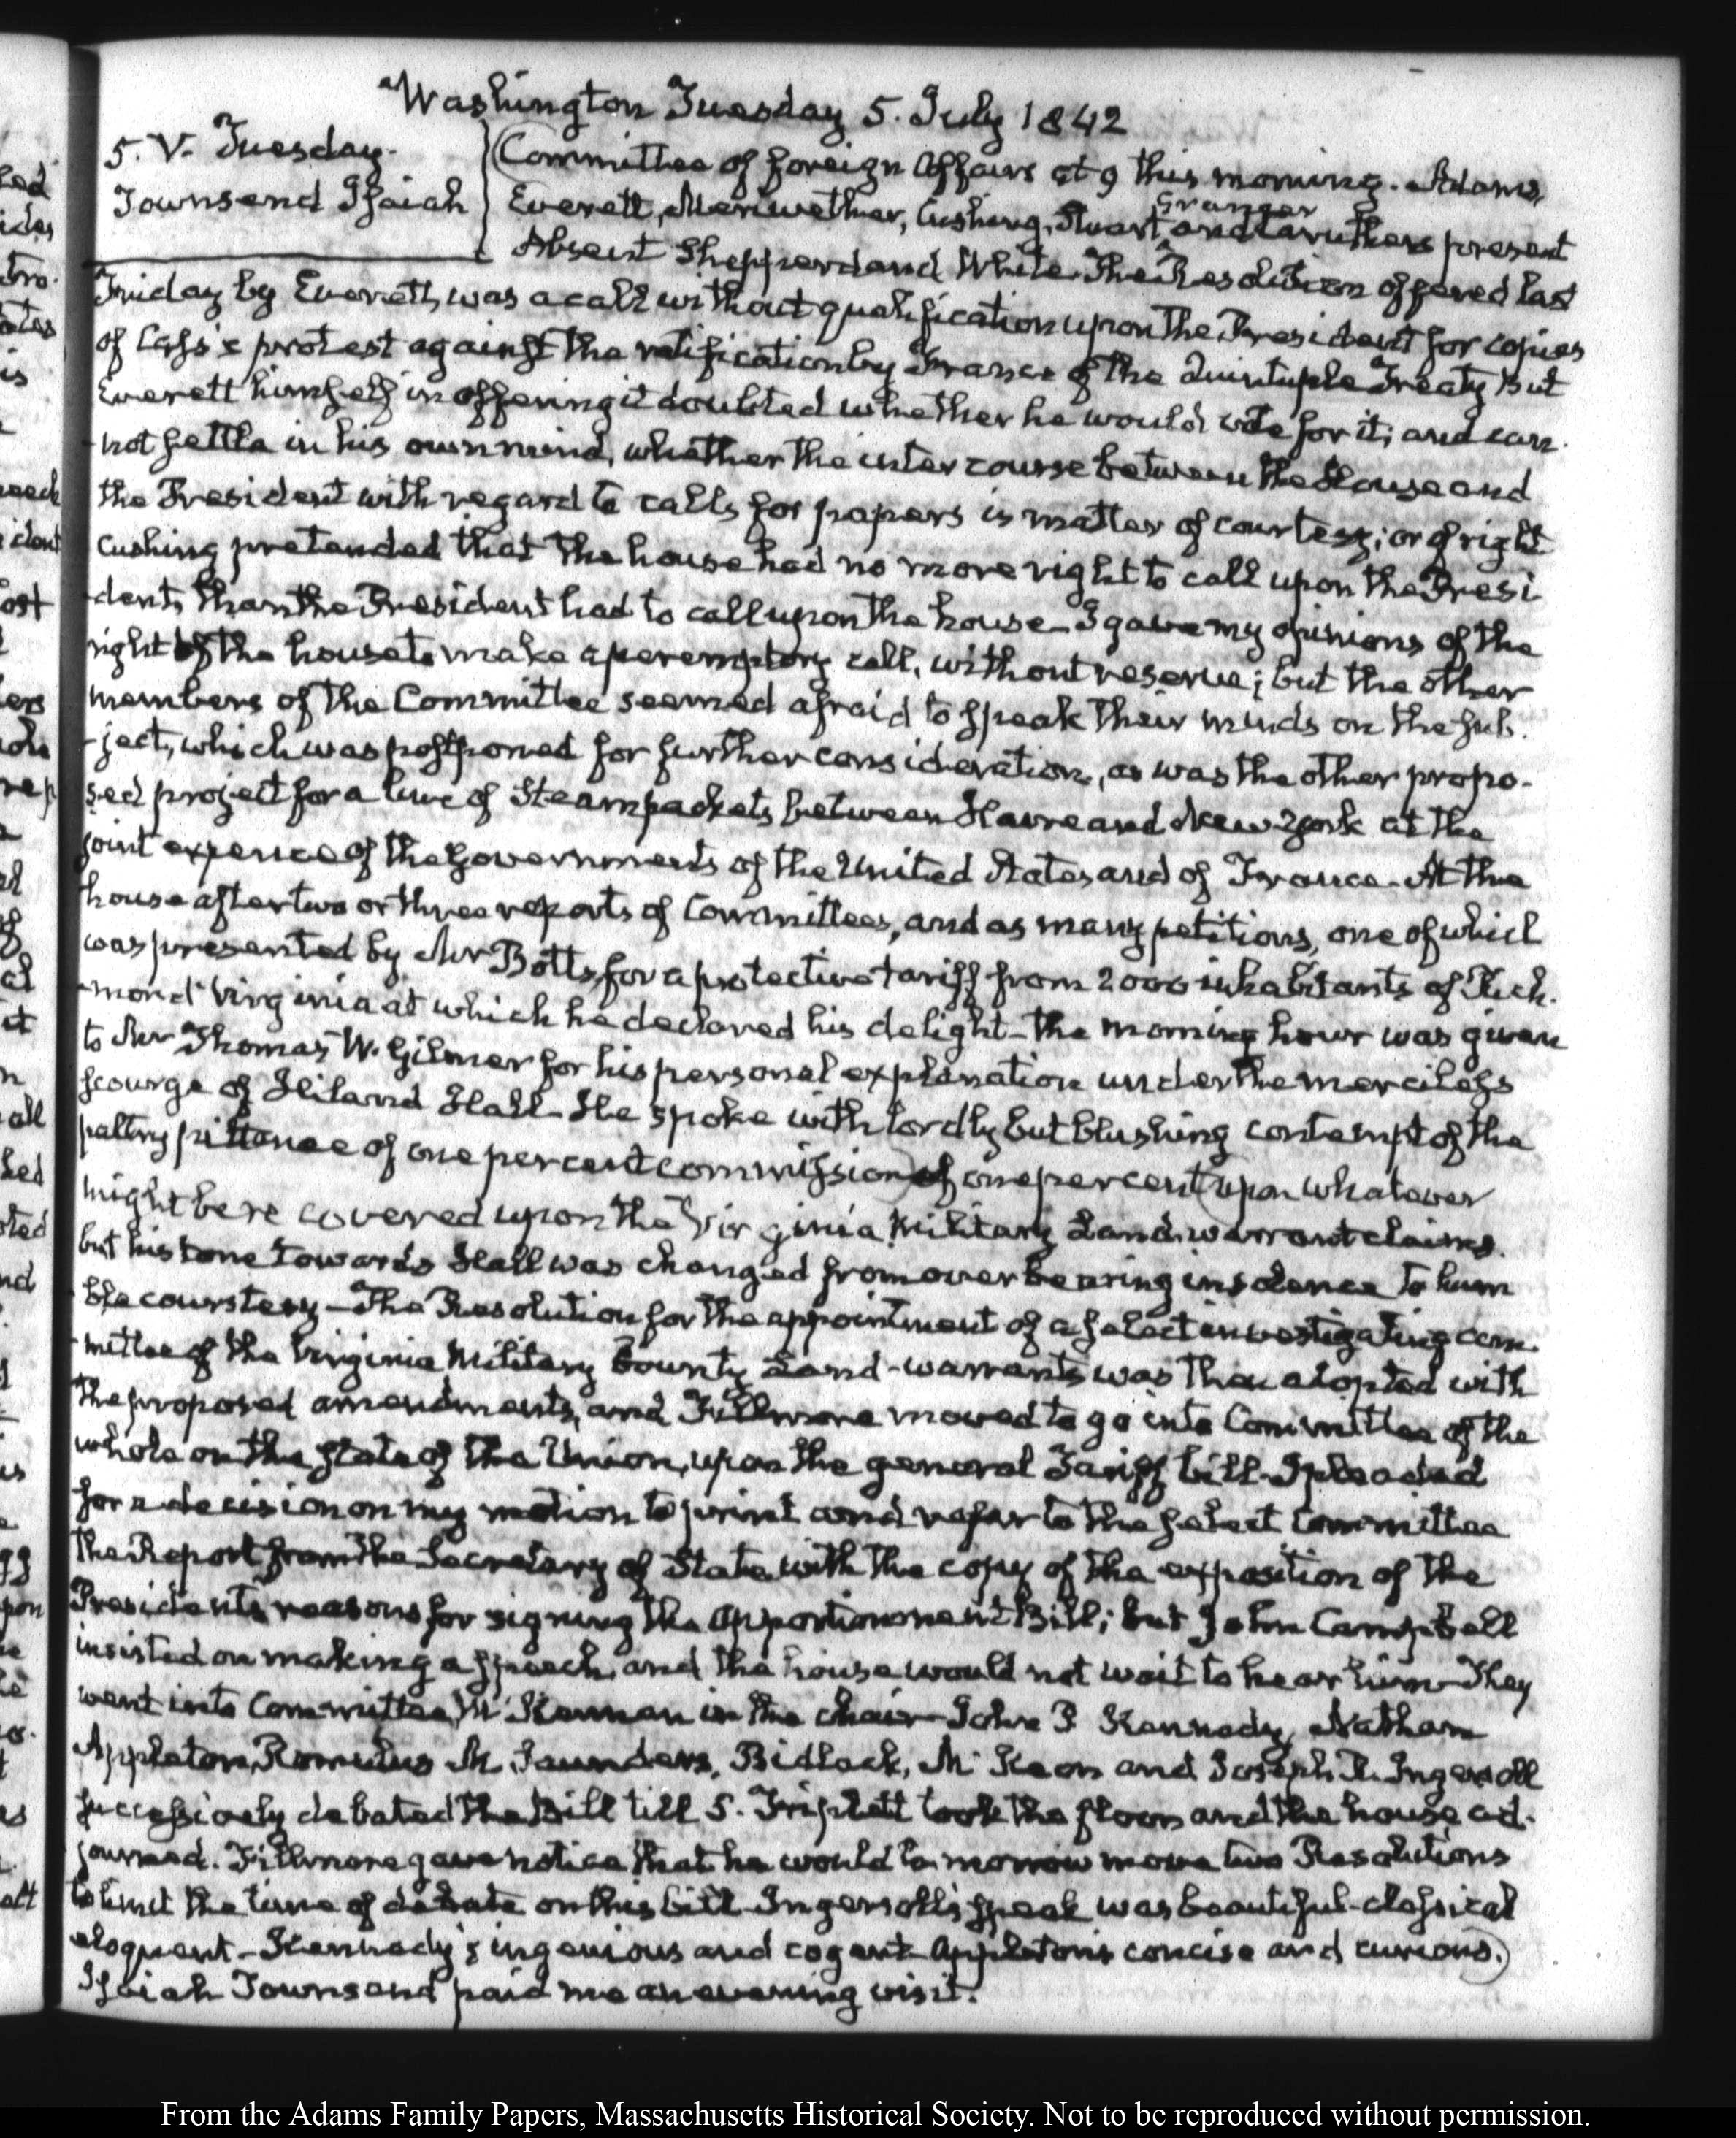 Washington Tuesday 5. July 1842
5. V. Tuesday.
Townsend Isaiah
Committee of foreign Affairs at 9 this morning. Adams,
Everett, Meriwether, Cushing, Stuart Granger and Caruthers present
Absent Shepperd and White. The Resolution offered last
Friday by Everett, was a call without qualification upon the President for copies
of Cass's protest against the ratification by France of the Quintuple Treaty But
Everett himself in offering it doubted whether he would vote for it; and can-
not settle in his own mind, whether the intercourse between the House and
the President with regard to calls for papers is matter of courtesy; or of right
Cushing pretended that the house had no more right to call upon the Presi
-dent, than the President had to call upon the house_ I gave my opinions of the
right of the house to make a peremptory call, without reserve; but the other
members of the Committee seemed afraid to speak their minds on the sub-
-ject, which was postponed for further consideration, as was the other propo-
sed project for a line of Steam packets between Havre and New York at the
joint expence of the Governments of the United States and of France_ At the
house after two or three reports of Committees, and as many petitions, one of which
was presented by Mr Botts, for a protective tariff from 2000 inhabitants of Rich-
-mond Virginia at which he declared his delight_ the morning hour was given
to Mr Thomas W. Gilmer for his personal explanation under the merciless
scourge of Hiland Hall_ He spoke with lordly but blushing contempt of the
paltry pittance of one per cent commission of one per cent upon whatever
might be recovered upon the Virginia Military Land warrant claims.
but his tone towards Hall was changed from overbearing insolence to hum
-ble courstesy_ The Resolution for the appointment of a select investigating com-
-mittee of the Virginia Military Bounty Land-warrants was then adopted with
the proposed amendments, and Fillmore moved to go into Committee of the
whole on the state of the Union, upon the general Tariff bill_ I pleaded
for a decision on my motion to print and refer to the select Committee
the Report from the Secretary of State with the copy of the exposition of the
Presidents reasons for signing the Apportionment Bill; but John Campbell
insisted on making a speech, and the house would not wait to hear him_ They
went into Committee, McKennan in the chair_ John P. Kennedy, Nathan
Appleton, Romulus M. Saunders, Bidlack, McKeon and Joseph R. Ingersoll
successively debated the Bill till 5. Triplett took the floor and the house ad-
journed. Fillmore gave notice that he would to-morrow move two Resolutions
to limit the time of debate on this bill_ Ingersoll's speech was beautiful-classical
eloquent_ Kennedy's ingenious and cogent_ Appleton's concise and curious.
Isaiah Townsend paid me an evening visit.
From the Adams Family Papers, Massachusetts Historical Society. Not to be reproduced without permission.